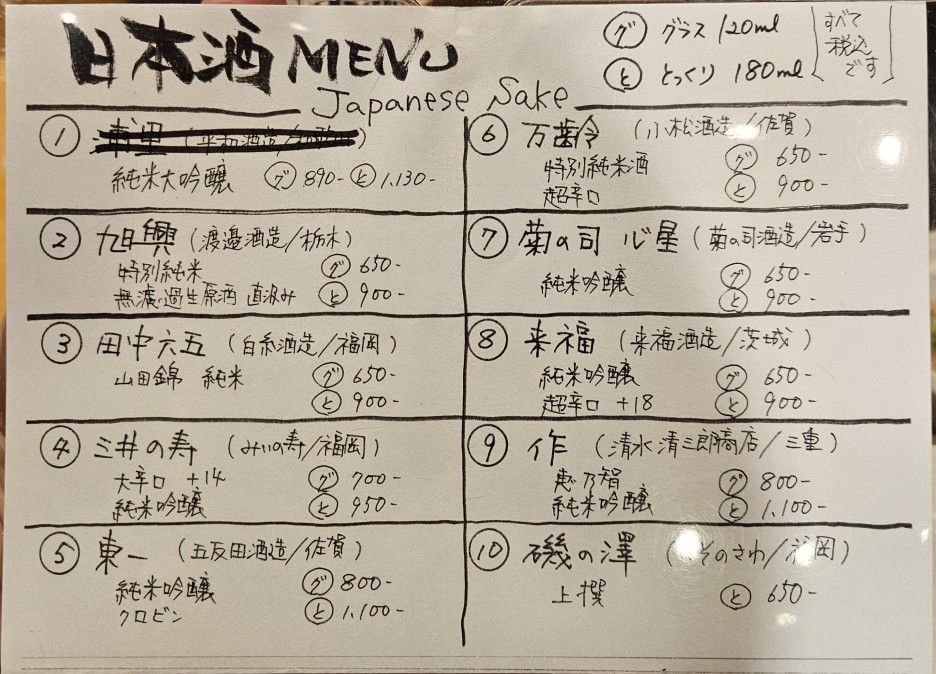 日本酒 MENU
Japanese Sake
グ グラス 120ml
と とっくり 180ml
すべて
税込
です
1
純米大吟醸 グ 890- と 1.130-
2 旭興 (渡邉酒造/栃木)
特別純米 グ 650-
無濾過生原酒 直汲み と 900-
3 田中六五 (白糸酒造/福岡)
山田錦 純米 グ 650-
と 900-
4 三井の寿 (みいの寿/福岡)
大辛口 +14 グ 700-
純米吟醸 と 950-
5 東一 (五反田酒造/佐賀)
純米吟醸 グ 800-
クロビン と 1.100-
6 万齢 (小松酒造/佐賀)
特別純米酒 グ 650-
超辛口 と 900-
7 菊の司 心星 (菊の司酒造/岩手)
純米吟醸 グ 650-
と 900-
8 来福 (来福酒造/茨城)
純米吟醸 グ 650-
超辛口 +18 と 900-
9 作 (清水清三郎商店/三重)
恵乃智 グ 800-
純米吟醸 と 1.100-
10 磯の澤 (いそのさわ/福岡)
上撰 と 650-